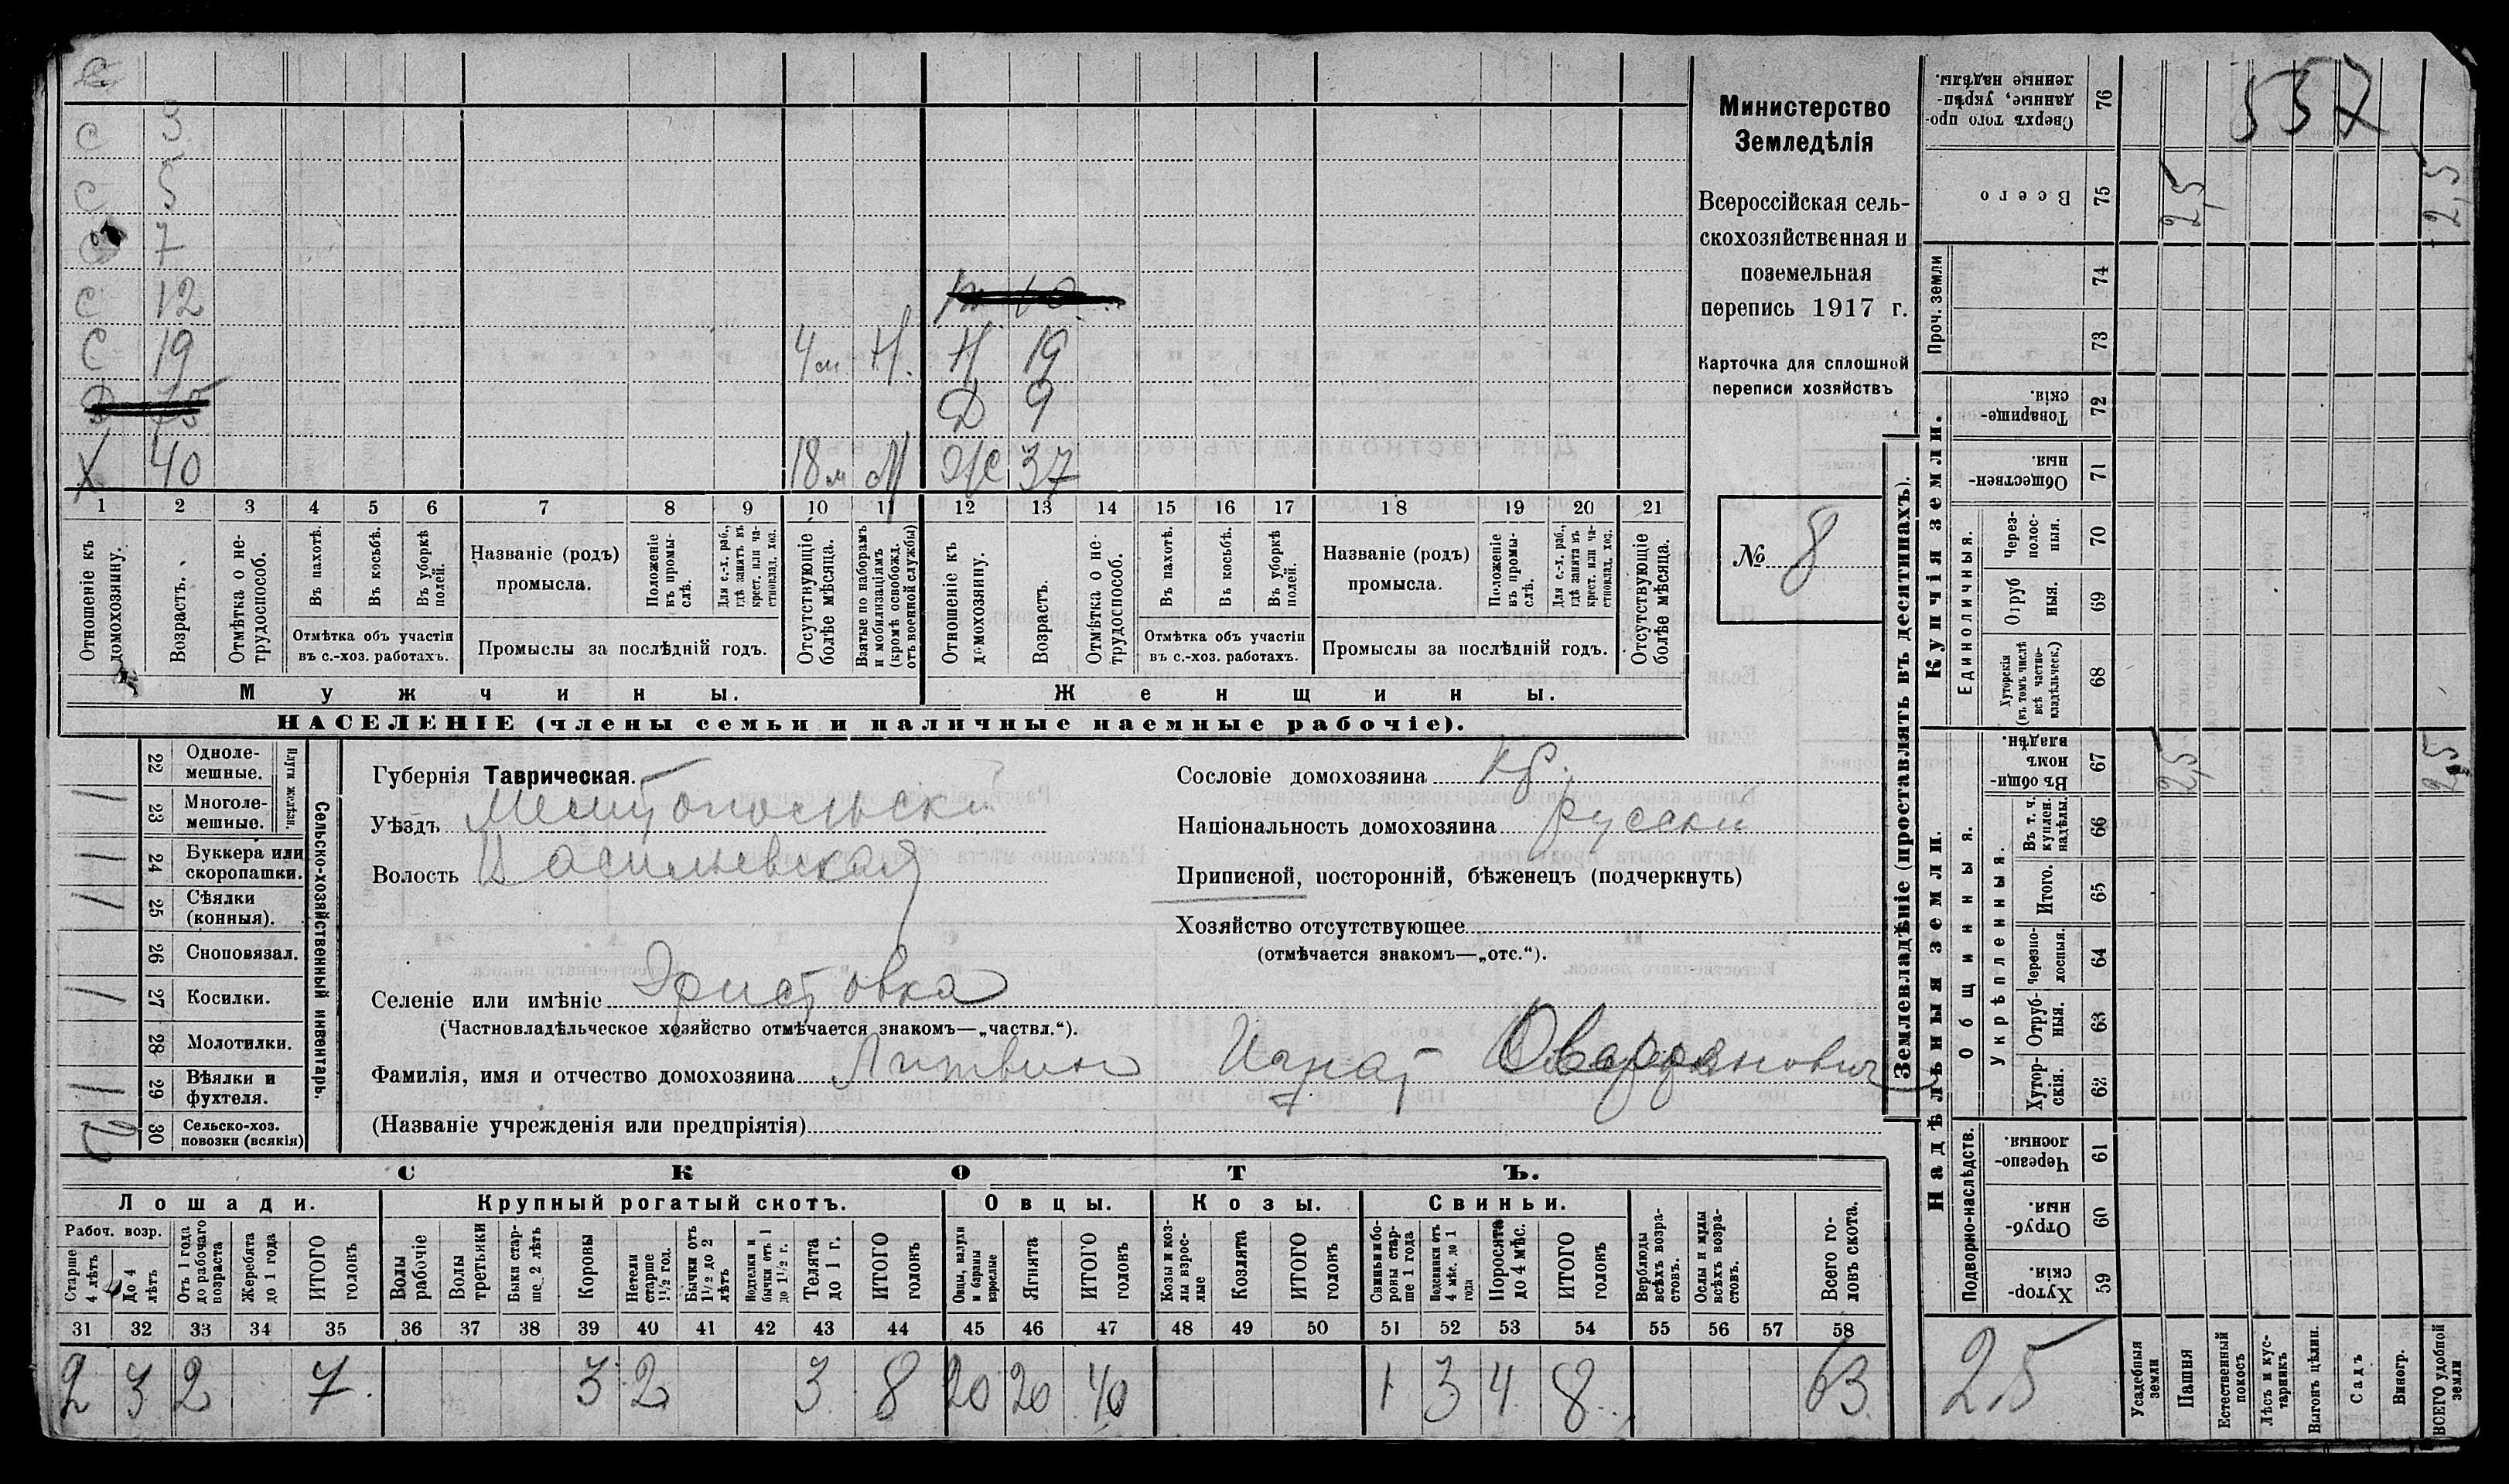 С
С 3
С 5
С 7
С 12
С 19 4 м Н. Н 19
Д 9
Х 40 18 м М Ж 37
1 2 3 4 5 6 7 8 9 10 11 12 13 14 15 16 17 18 19 20 21
Отношеніе къ домохозяину.
Возрастъ.
Отмѣтка о нетрудоспособ.
Въ пахотѣ.
Въ косьбѣ.
Въ уборкѣ полей.
Отмѣтка объ участіи въ с.-хоз. работахъ.
Названіе (родъ) промысла.
Положеніе въ промыслѣ.
Для с.-х. раб., гдѣ занятъ въ крест. или частновлад. хоз.
Промыслы за послѣдній годъ.
Отсутствующіе болѣе мѣсяца.
Взятые по наборамъ и мобилизаціямъ (кромѣ освобожд. отъ военной службы)
Отношеніе къ домохозяину.
Возрастъ.
Отмѣтка о нетрудоспособ.
Въ пахотѣ.
Въ косьбѣ.
Въ уборкѣ полей.
Отмѣтка объ участіи въ с.-хоз. работахъ.
Названіе (родъ) промысла.
Положеніе въ промыслѣ.
Для с.-х. раб., гдѣ занята въ крест. или частновлад. хоз.
Промыслы за послѣдній годъ.
Отсутствующіе болѣе мѣсяца.
Мужчины.
Женщины.
НАСЕЛЕНІЕ (члены семьи и наличные наемные рабочіе).
Министерство
Земледѣлія
Всероссійская сель-
скохозяйственная и
поземельная
перепись 1917 г.
Карточка для сплошной
переписи хозяйствъ
№ 8
Сельско-хозяйственный инвентарь.
Плуги желѣзн.
22 Одноле-мешные.
1 23 Многоле-мешные.
1 24 Буккера или скоропашки.
1 25 Сѣялки (конныя).
26 Сноповязал.
1 27 Косилки.
28 Молотилки.
1 29 Вѣялки и фухтеля.
2 30 Сельско-хоз. повозки (всякія)
Губернія Таврическая.
Уѣздъ Мелитопольски
Волость Васильевская
Селеніе или имѣніе Эристовка
(Частновладѣльческое хозяйство отмѣчается знакомъ—„частвл.“).
Фамилія, имя и отчество домохозяина Литвин Игнат
(Названіе учрежденія или предпріятія)
Сословіе домохозяина кр.
Національность домохозяина русски
Приписной, посторонній, бѣженецъ (подчеркнуть)
Хозяйство отсутствующее
(отмѣчается знакомъ—„отс.“).
СКОТЪ.
Лошади.
Крупный рогатый скотъ.
Овцы.
Козы.
Свиньи.
Рабоч. возр.
Старше 4 лѣтъ
До 4 лѣтъ
Отъ 1 года до рабочаго возраста
Жеребята до 1 года
ИТОГО головъ
Волы рабочіе
Волы третьяки
Быки старше 2 лѣтъ
Коровы
Нетели старше 1½ год.
Бычки отъ 1½ до 2 лѣтъ
Подтелки и бычки отъ 1 до 1½ г.
Телята до 1 г.
ИТОГО головъ
Овцы, валухи и бараны взрослые
Ягнята
ИТОГО головъ
Козы и козлы взрослые
Козлята
ИТОГО головъ
Свиньи и бороны старше 1 года
Подсвинки отъ 4 мѣс. до 1 года
Поросята до 4 мѣс.
ИТОГО головъ
Верблюды всѣхъ возрастовъ.
Ослы и мулы всѣхъ возрастовъ.
Всего головъ скота.
31 32 33 34 35 36 37 38 39 40 41 42 43 44 45 46 47 48 49 50 51 52 53 54 55 56 57 58
2 3 2 7 3 2 3 8 20 20 40 1 3 4 8 63
Землевладѣніе (проставлять въ десятинахъ).
Купчія земли.
Надѣльныя земли.
Сверхъ того проданные, укрѣпленные надѣлы. 76
557
Всего 75 2,5 2,5
Проч. земли 74
73
Товарищескія. 72
Общественныя. 71
Единоличныя.
Черезполосныя. 70
Отрубныя. 69
Хуторскія (въ томъ числѣ всѣ частновладѣльческ.) 68
Общинныя.
Въ общинномъ владѣн. 67 2,5 2,5
Укрѣпленныя.
Въ т. ч. куплен. надѣлы. 66
Итого. 65
Черезполосныя. 64
Отрубныя. 63
Хуторскія. 62
Подворно-наслѣдств.
Черезполосныя. 61
Отрубныя. 60
Хуторскія. 59
2,5
Усадебныя земли
Пашня
Естественный покосъ
Лѣсъ и кустарникъ
Выгонъ цѣлин.
Садъ
Виногр.
ВСЕГО удобной земли